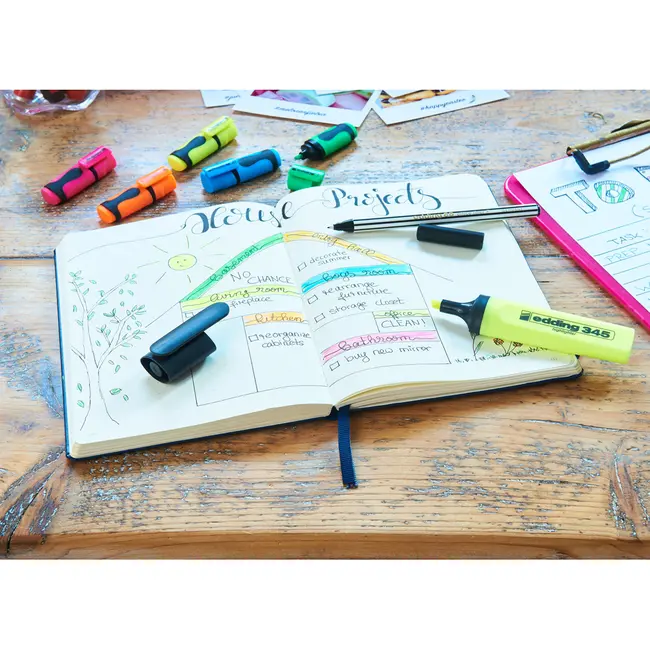 #happypainting
House Projects
basement
NO CHANCE
living room
fireplace
kitchen
reorganize
cabinets
decorate
summer
boys room
rearrange
furniture
storage closet
office
CLEAN!
bathroom
buy new mirror
edding 345
highlighter
TO
TASK
PREP